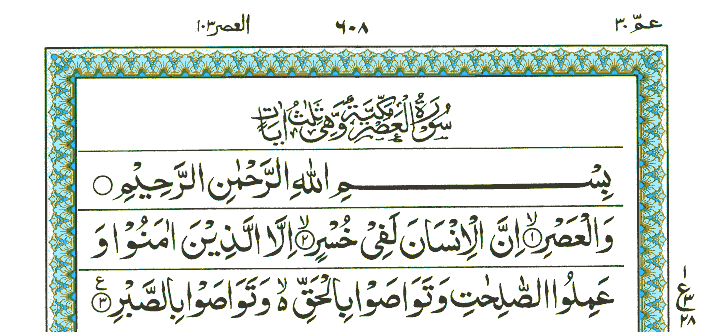 عمّ ٣٠ ٦٠٨ العصر ١٠٣
سُوْرَةُ الْعَصْرِ مَكِّيَّةٌ وَّهِيَ ثَلٰثُ اٰيَاتٍ
بِسْــــــــــــــمِ اللّٰهِ الرَّحْمٰنِ الرَّحِيْمِ ○
وَالْعَصْرِۙ ١ اِنَّ الْاِنْسَانَ لَفِيْ خُسْرٍۙ ٢ اِلَّا الَّذِيْنَ اٰمَنُوْا وَ
عَمِلُوا الصّٰلِحٰتِ وَتَوَاصَوْا بِالْحَقِّ ۙ۬ وَتَوَاصَوْا بِالصَّبْرِ ٣ ع
١
ع ٣
٢٨